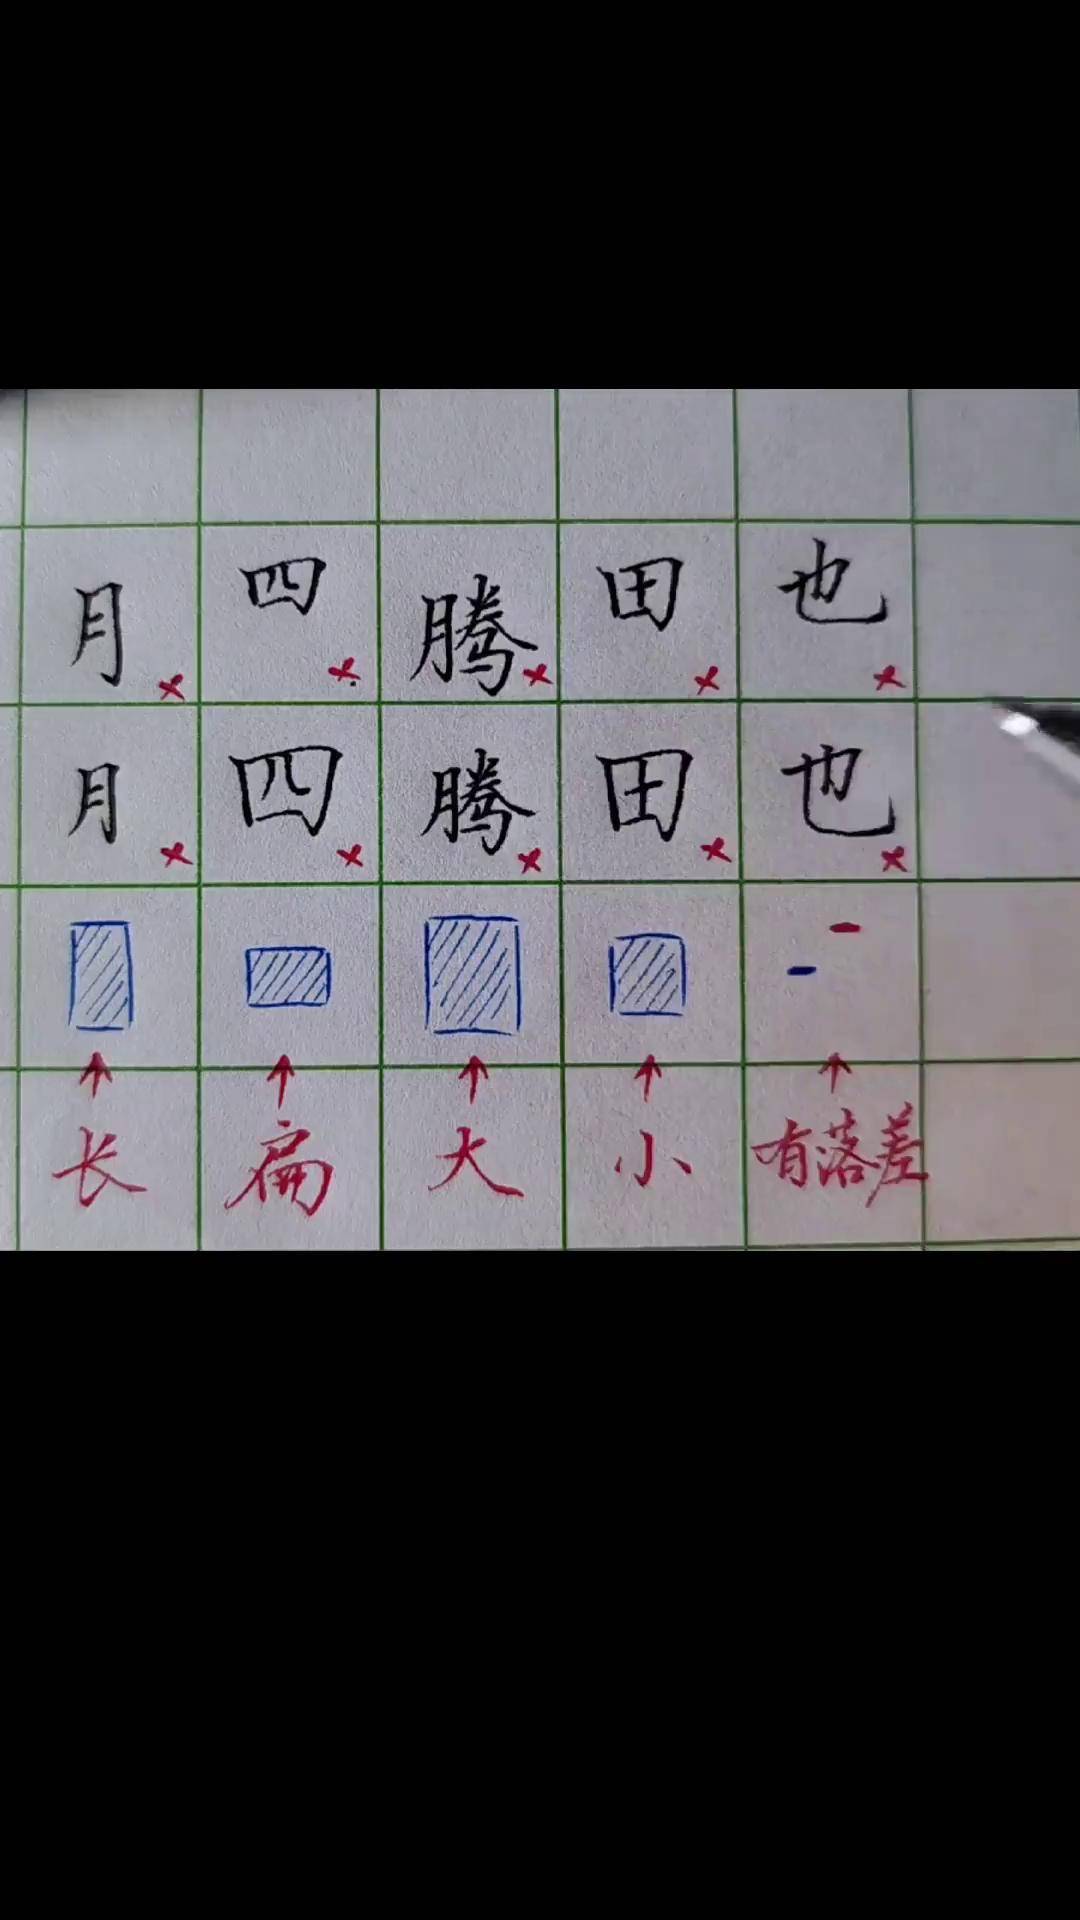 月 四 腾 田 也
月 四 腾 田 也
长 扁 大 小 有落差